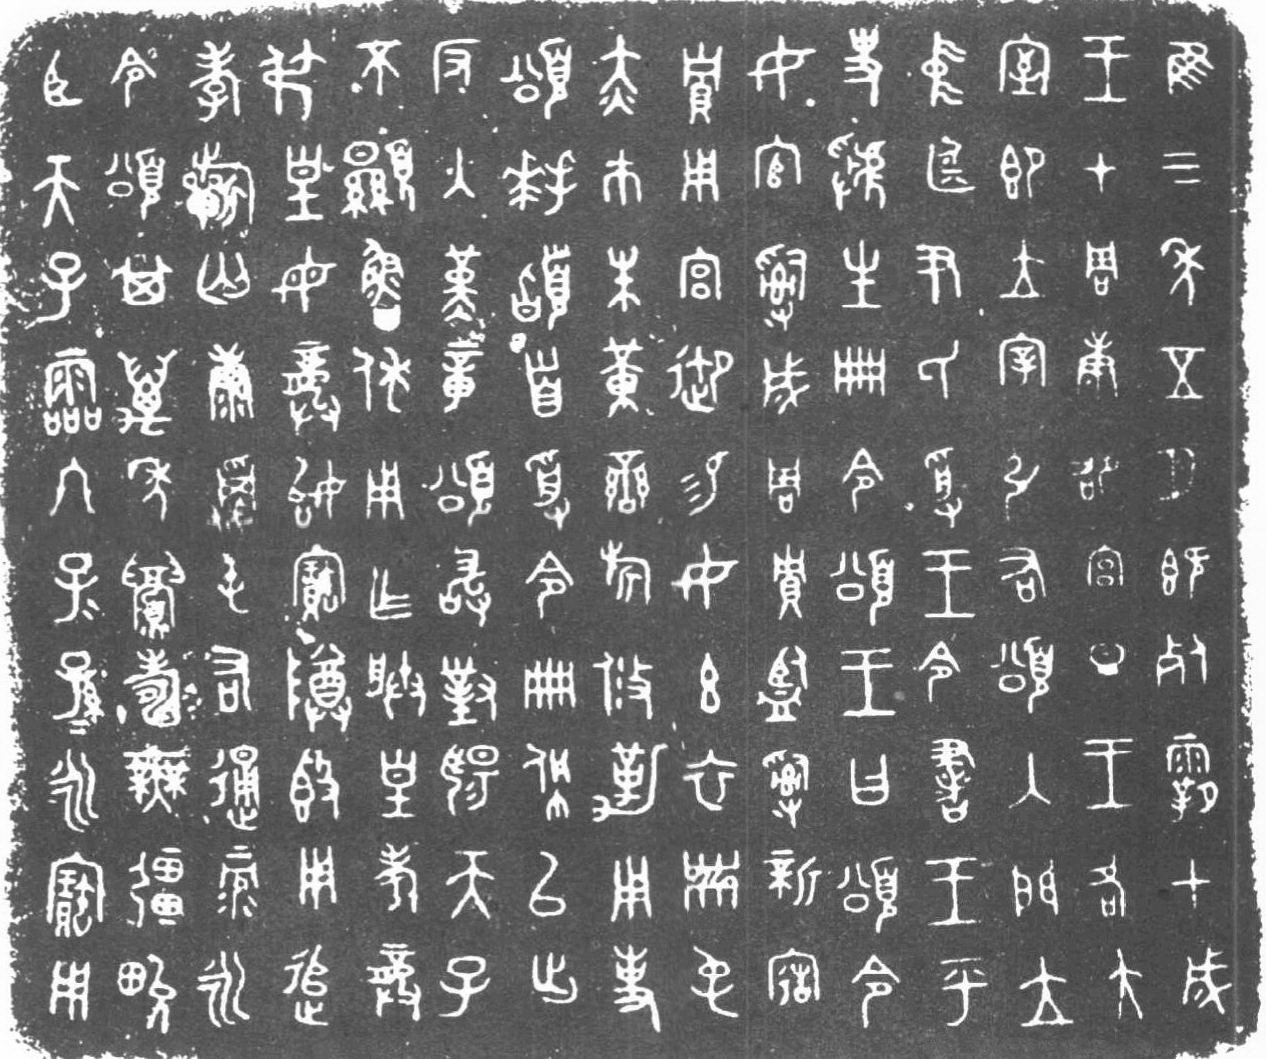 隹三年五月既死霸甲戌
王才周康卲宮旦王各大
室即立宰引右頌入門立
中廷尹氏受王令書王乎
史虢生冊令頌王曰頌令
女官𤔲成周貯監𤔲新造
貯用宮御易女玄衣黹屯
赤巿朱黃鑾旂攸勒用事
頌拜𩒨首受令冊佩以出
反入堇章頌敢對揚天子
不顯魯休用乍朕皇考龏
弔皇母龏始寶尊簋用追
孝𣄨匃康𠭯屯右通彔永
令頌其萬年眉壽無疆畯
臣天子霝冬子=孫=永寶用